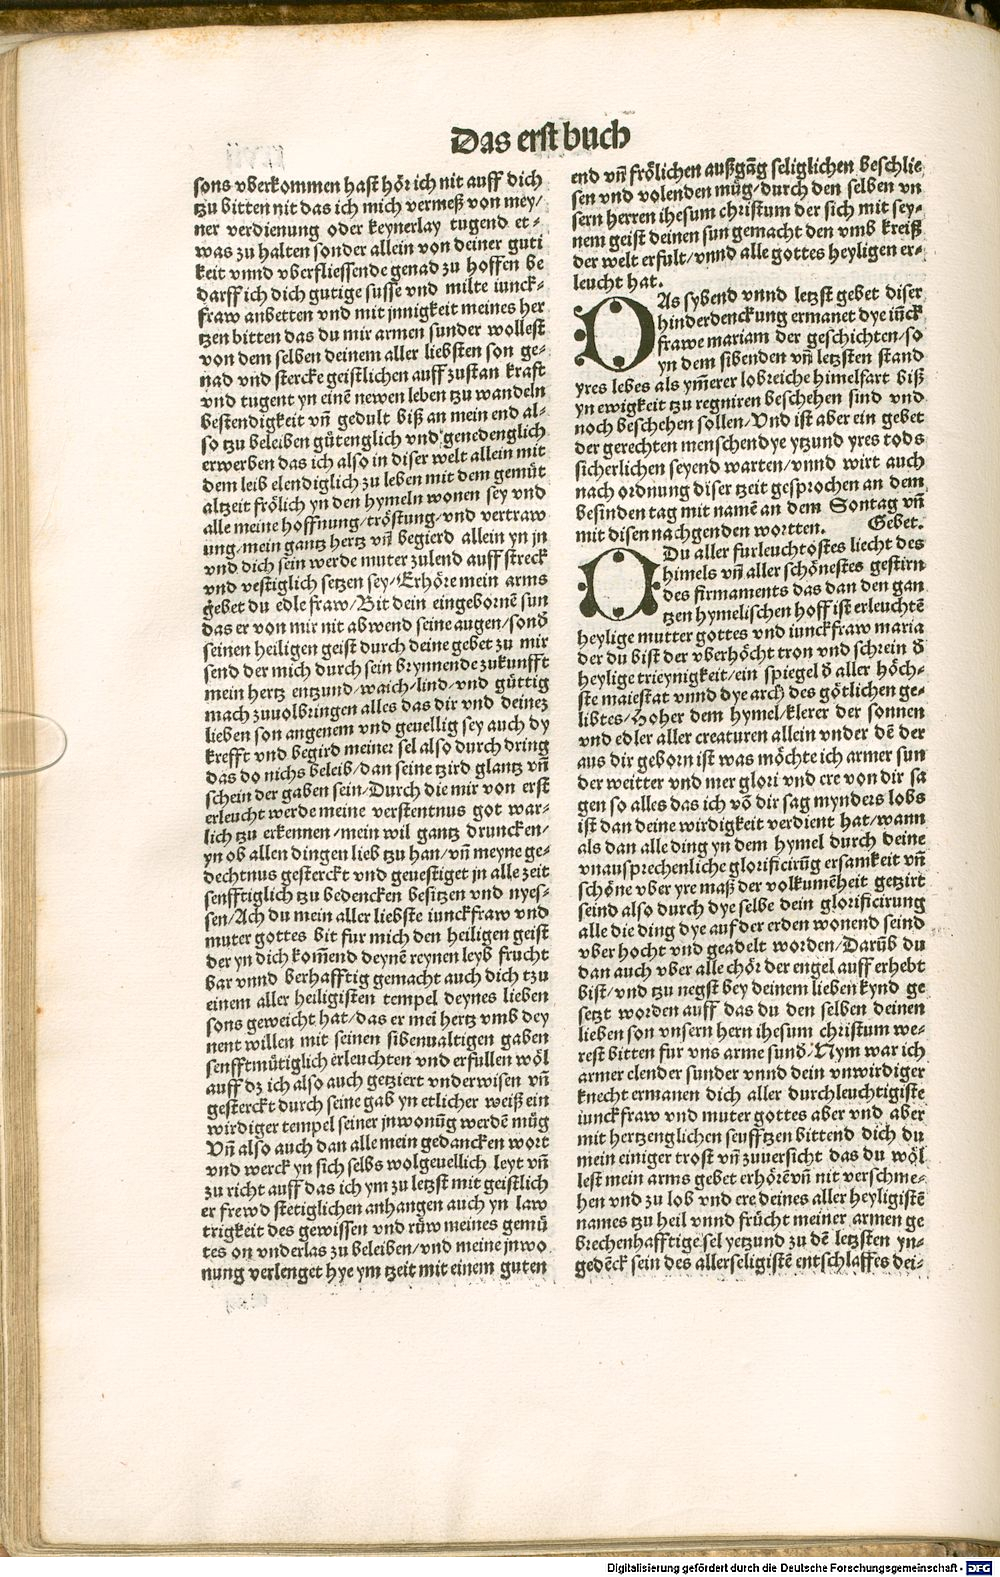 Das erst buch
sons vberkommen hast hör ich nit auff dich
tzu bitten nit das ich mich vermeß von mey/
ner verdienung oder keynerlay tugend et⸗
was zu halten sonder allein von deiner guti
keit vnnd vberfliessende genad zu hoffen be
darff ich dich gutige susse vnd milte iunck⸗
fraw anbetten vnd mit jnnigkeit meines her
tzen bitten das du mir armen sunder wollest
von dem selben deinem aller liebsten son ge⸗
nad vnd stercke geistlichen auff zustan krafft
vnd tugent yn einē newen leben tzu wandeln
bestendigkeit vñ gedult biß an mein end al⸗
so tzu beleiben gütenglich vnd genedenglich
erwerben das ich also in diser welt allein mit
dem leib elendiglich zu leben mit dem gemüt
altzeit frölich yn den hymeln wonen sey vnd
alle meine hoffnung/tröstung/vnd vertraw
ung/mein gantz hertz vñ begierd allein yn jn
vnd dich sein werde muter zulend auff streck
vnd vestiglich setzen sey/Erhöre mein arms
gebet du edle fraw/Bit dein eingebornē sun
das er von mir nit abwend seine augen/sond̄
seinen heiligen geist durch deine gebet zu mir
send der mich durch sein brynnende zukunfft
mein hertz entzund/waich/lind/vnd güttig
mach zuuolbringen alles das dir vnd deinez
lieben son angenem vnd geuellig sey auch dy
krefft vnd begird meiner sel also durch dring
das do nichs beleib/dan seine tzird glantz vñ
schein der gaben sein/Durch die mir von erst
erleucht werde meine verstentnus got war⸗
lich tzu erkennen/mein wil gantz druncken/
yn ob allen dingen lieb tzu han/vñ meyne ge⸗
dechtnus gesterckt vnd geuestiget jn alle zeit
senfftiglich tzu bedencken besitzen vnd nyes⸗
sen/Ach du mein aller liebste iunckfraw vnd
muter gottes bit fur mich den heiligen geist
der yn dich kom̄end deynē reynen leyb frucht
bar vnnd berhafftig gemacht auch dich tzu
einem aller heiligisten tempel deynes lieben
sons geweicht hat/das er mei hertz vmb dey
nent willen mit seinen sibenualtigen gaben
senfftmütiglich erleuchten vnd erfullen wöl
auff dz ich also auch getziert vnderwisen vñ
gesterckt durch seine gab yn etlicher weiß ein
wirdiger tempel seiner jnwonūg werdē müg
Vñ also auch dan alle mein gedancken wort
vnd werck yn sich selbs wolgeuellich leyt vñ
zu richt auff das ich ym zu letzst mit geistlich
er frewd stetiglichen anhangen auch yn law
trigkeit des gewissen vnd rüw meines gemü
tes on vnderlas zu beleiben/vnd meine jnwo
nung verlenget hye ym tzeit mit einem guten
end vñ frölichen außgāg seliglichen beschlie
sen vnd volenden müg/durch den selben vn
sern herren ihesum christum der sich mit sey⸗
nem geist deinen sun gemacht den vmb kreiß
der welt erfult/vnnd alle gottes heyligen er⸗
leucht hat.
DAs sybend vnnd letzst gebet diser
hinderdenckung ermanet dye iūck
frawe mariam der geschichten/so
yn dem sibenden vñ letzsten stand
yres lebes als ym̄erer lobreiche himelfart biß
yn ewigkeit tzu regniren beschehen sind vnd
noch beschehen sollen/Vnd ist aber ein gebet
der gerechten menschen dye ytzund yres tods
sicherlichen seyend warten/vnnd wirt auch
nach ordnung diser tzeit gesprochen an dem
besinden tag mit namē an dem Sontag vñ
mit disen nachgenden wortten. Gebet.
O Du aller furleuchtostes liecht des
himels vñ aller schönestes gestirn
des firmaments das dan den gan
tzen hymelischen hoff ist erleuchtē
heylige mutter gottes vnd iunckfraw maria
der du bist der vberhöcht tron vnd schrein d̄
heylige trieynigkeit/ein spiegel d̄ aller höch⸗
ste maiestat vnnd dye arch des götlichen ge⸗
libtes/Hoher dem hymel/klerer der sonnen
vnd edler aller creaturen allein vnder dē der
aus dir geborn ist was möchte ich armer sun
der weitter vnd mer glori vnd ere von dir sa
gen so alles das ich vō dir sag mynders lobs
ist dan deine wirdigkeit verdient hat/wann
als dan alle ding yn dem hymel durch deine
vnausprechenliche glorificirūg ersamkeit vñ
schöne vber yre maß der volkumēheit getzirt
seind also durch dye selbe dein glorificirung
alle die ding dye auf der erden wonend seind
vber hocht vnd geadelt worden/Darūb du
dan auch vber alle chör der engel auff erhebt
bist/vnd tzu negst bey deinem lieben kynd ge
setzt worden auff das du den selben deinen
lieben son vnsern hern ihesum christum we⸗
rest bitten fur vns arme sund̄/Nym war ich
armer elender sunder vnnd dein vnwirdiger
knecht ermanen dich aller durchleuchtigiste
iunckfraw vnd muter gottes aber vnd aber
mit hertzenglichen seufftzen bittend dich du
mein einiger trost vñ zuuersicht das du wöl
lest mein arms gebet erhörē vñ nit verschme⸗
hen vnd zu lob vnd ere deines aller heyligistē
names tzu heil vnnd frücht meiner armen ge
brechenhafftige sel yetzund zu dē letzsten yn⸗
gedēck sein des allerseligistē entschlaffes dei⸗
Digitalisierung gefördert durch die Deutsche Forschungsgemeinschaft - DFG